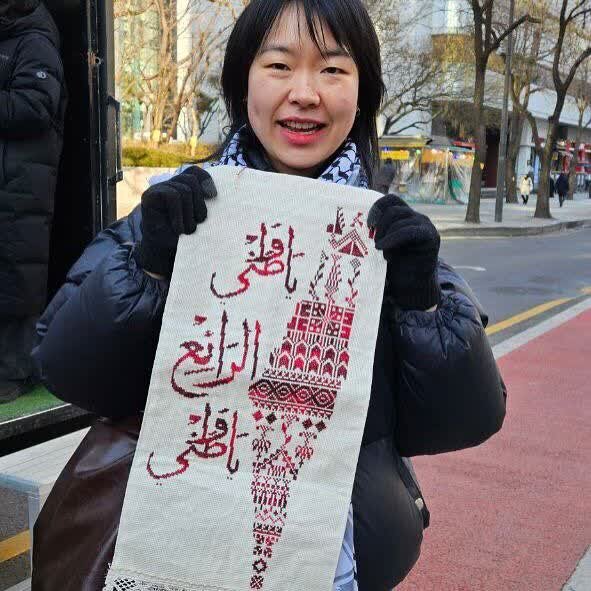 يا وطني
الرائع
يا وطني